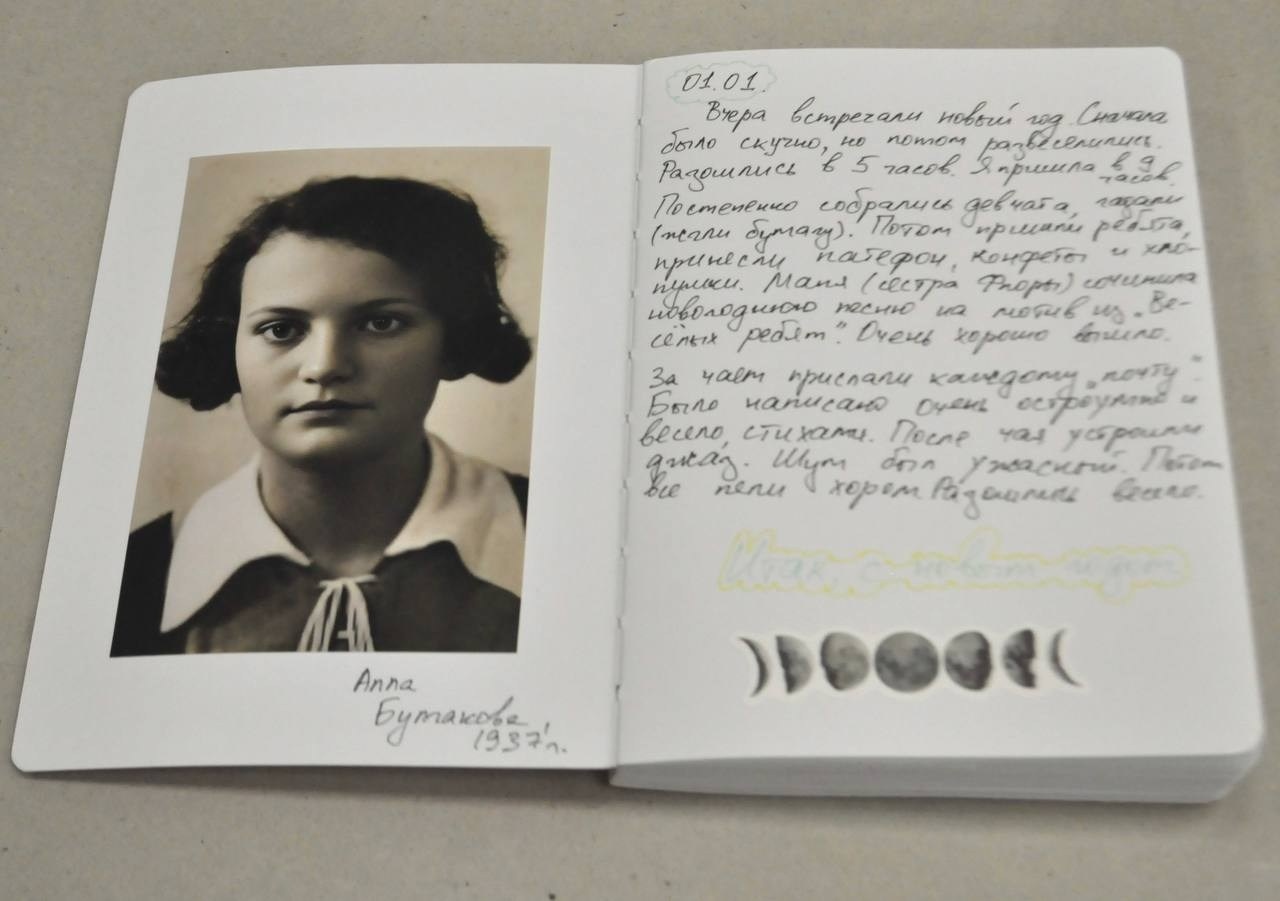 Алла
Бутакова
1937 г.
01.01.
Вчера встречали новый год. Сначала
было скучно, но потом развеселились.
Разошлись в 5 часов. Я пришла в 9
часов.
Постепенно собрались девчата, гадали
(жгли бумагу). Потом пришли ребята,
принесли патефон, конфеты и хло-
пушки. Маля (сестра Флоры) сочинила
новогоднюю песню на мотив из „Ве-
сёлых ребят". Очень хорошо вышло.
За чаем прислали каждому „почту".
Было написано очень остроумно и
весело, стихами. После чая устроили
джаз. Шум был ужасный. Потом
все пели хором. Разошлись весело.
Итак, с новым годом